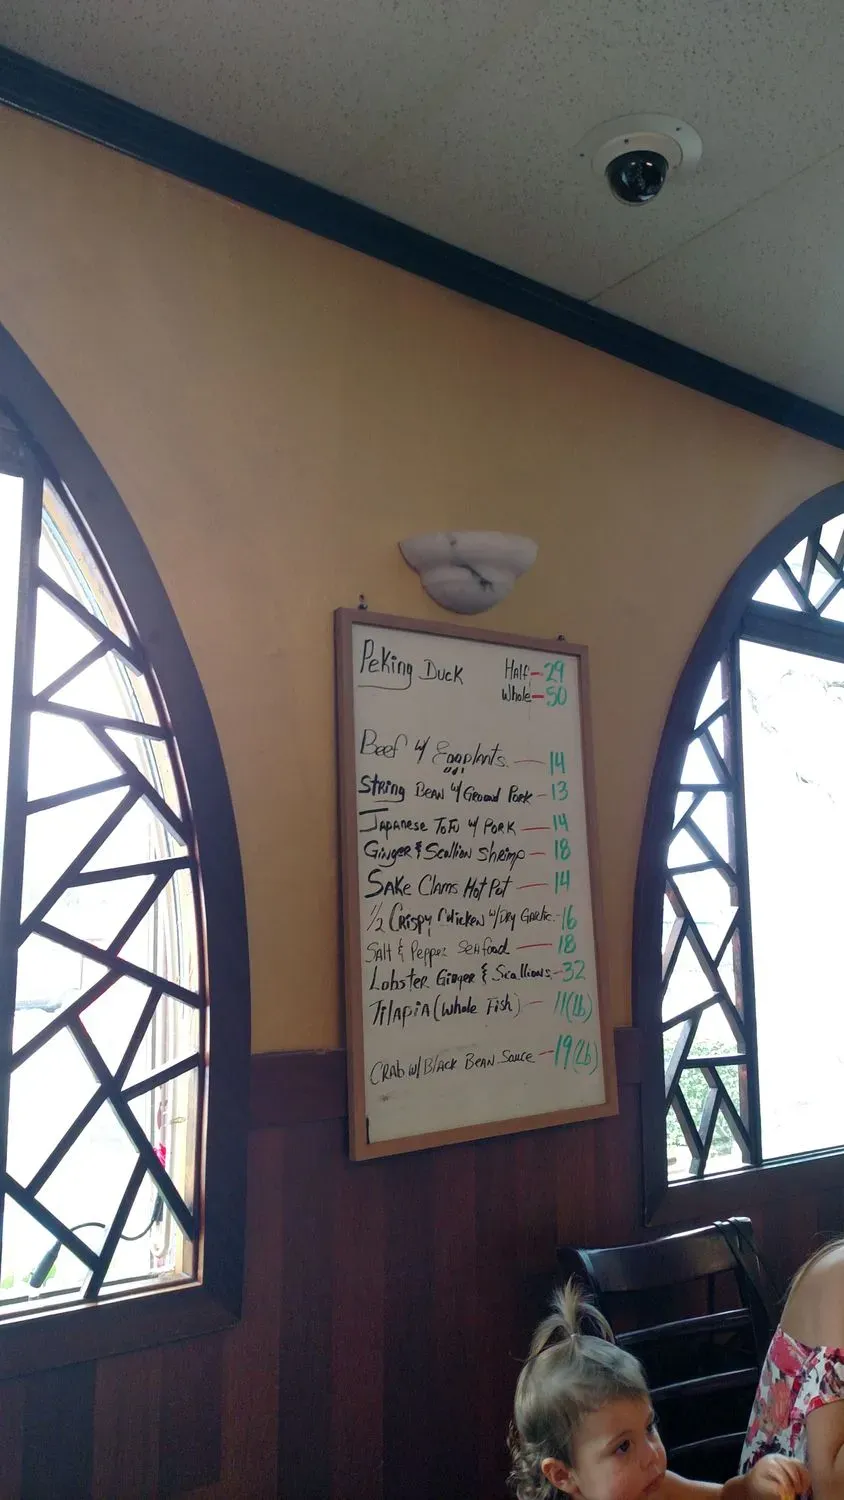 Peking Duck Half-29
Whole-50
Beef w/ Eggplants. - 14
String Bean w/ Ground Pork - 13
Japanese Tofu w/ Pork - 14
Ginger & Scallion Shrimp - 18
Sake Clams Hot Pot - 14
1/2 Crispy Chicken w/Dry Garlic - 16
Salt & Pepper Seafood - 18
Lobster Ginger & Scallions - 32
Tilapia (Whole Fish) - 11(lb)
Crab w/ Black Bean Sauce - 19(lb)